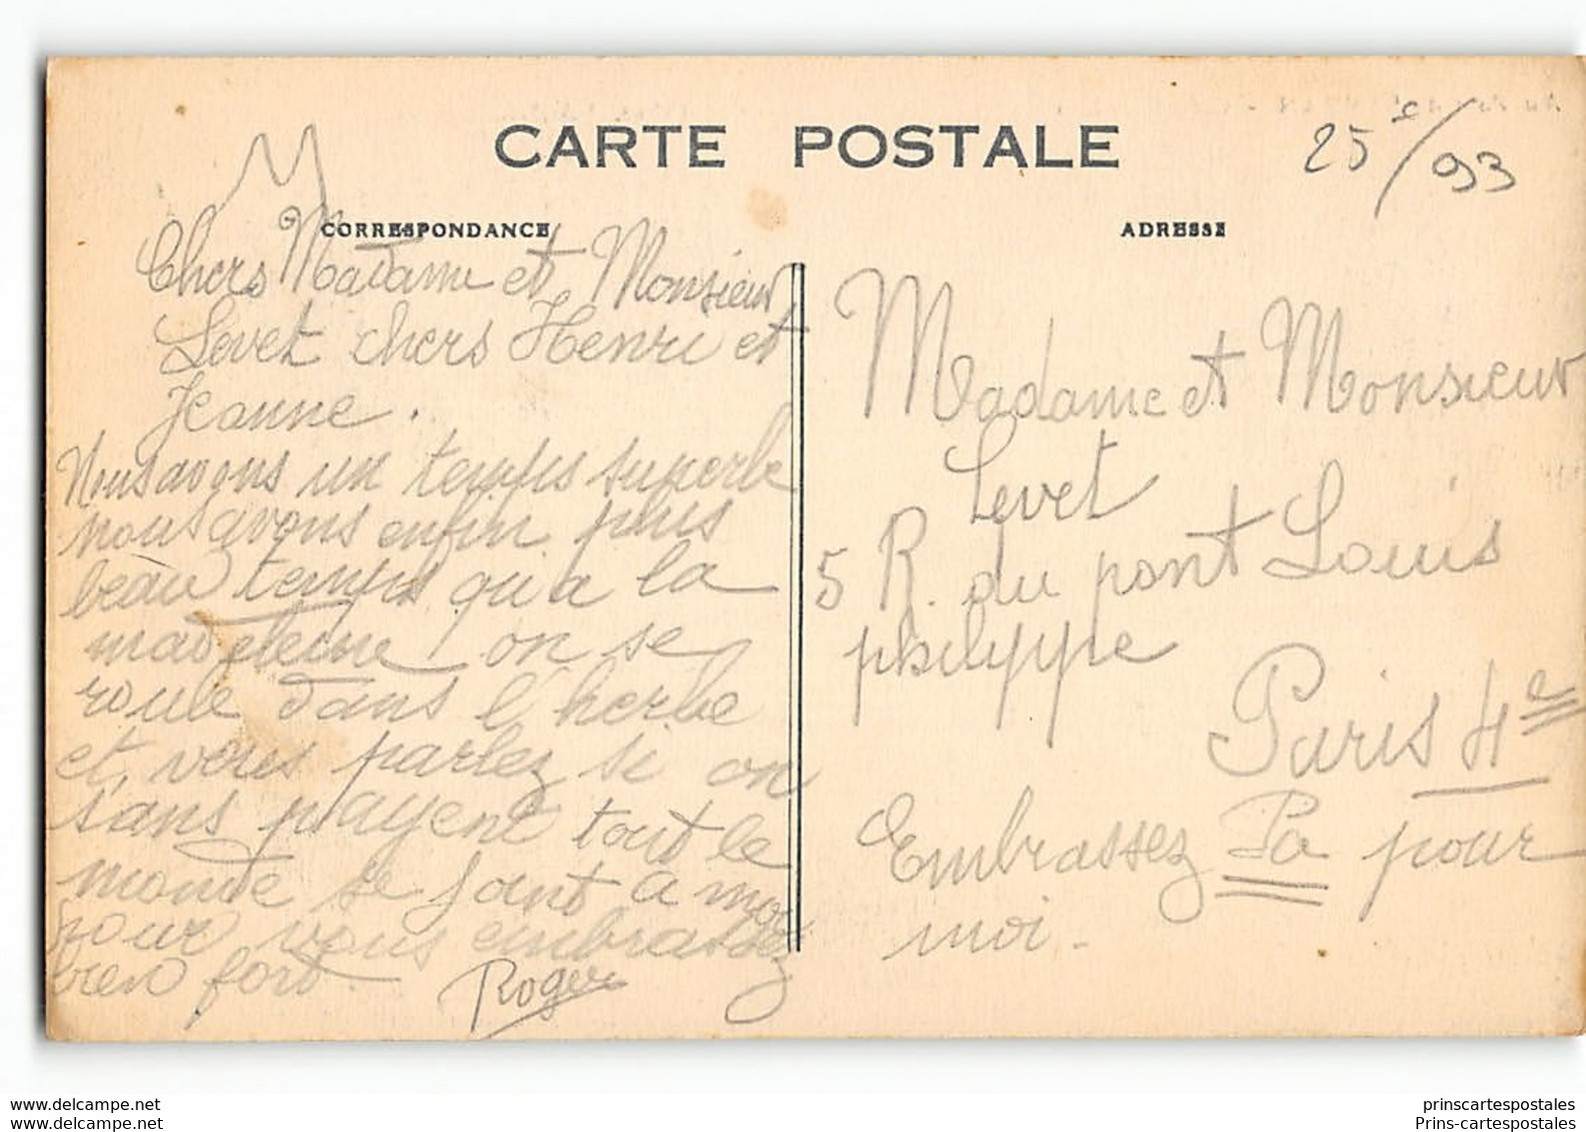 CARTE POSTALE
25 e/93
CORRESPONDANCE
ADRESSE
Chers Madame et Monsieur
Levet chers Henri et
Jeanne.
Nous avons un temps superbe
nous avons enfin plus
beau temps qu'a la
madeleine on se
roule dans l'herbe
et vous parlez si on
s'ans payent tout le
monde se joint a moi
pour vous embrassez
bien fort. Roger
Madame et Monsieur
Levet
5 R. du pont Louis
philyppe
Paris 4e
Embrassez Pa pour
moi.
www.delcampe.net
www.delcampe.net
prinscartespostales
Prins-cartespostales